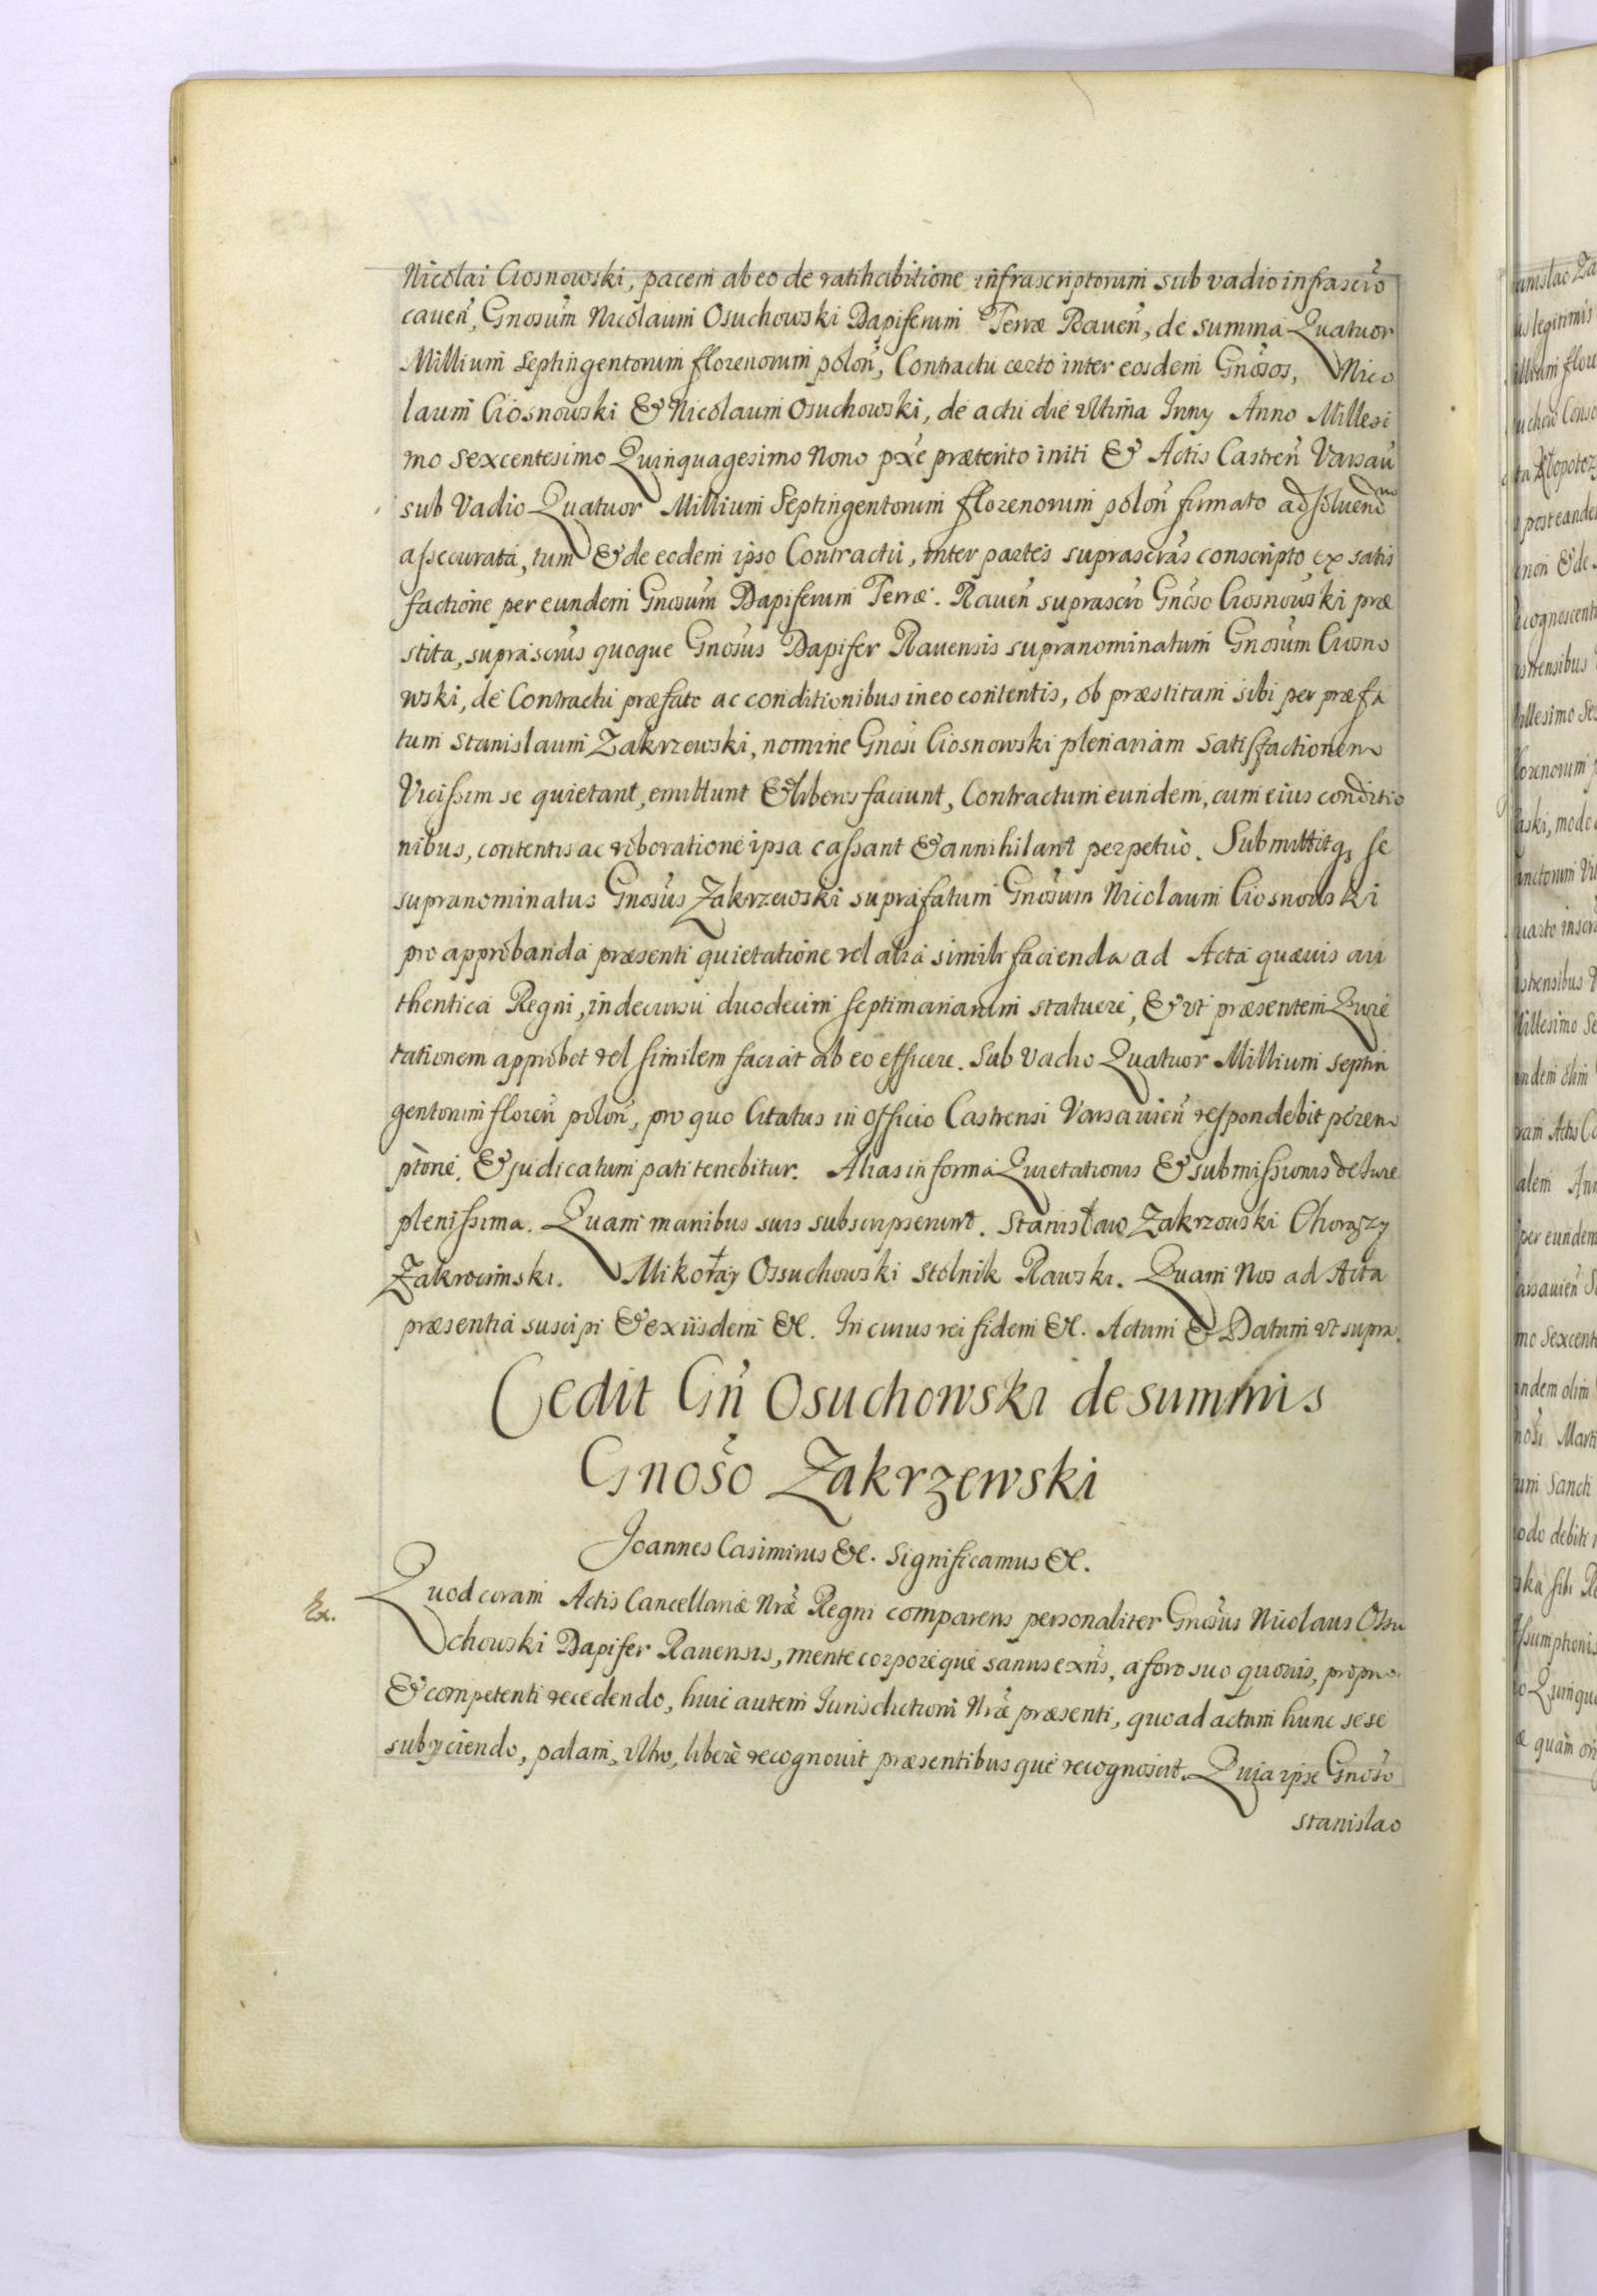 Nicolai Ciosnowski, pacem ab eo de ratihabitione infrascriptorum sub vadio infrascr̃o
caueñ, Gnosũm Nicolaum Osuchowski Dapiferum Terræ Raueñ, de summa Quatuor
Millium Septingentorum florenorum poloñ, Contractu certo inter eosdem Gnõsos, Nico
laum Ciosnowski & Nicolaum Osuchowski, de actu die ultima Iuny Anno Millesi
mo Sexcentesimo Quinquagesimo Nono px̃e præterito initi & Actis Castreñ Varsau̇
sub Vadio Quatuor Millium Septingentorum florenorum poloñ firmato adsoluendm
assecurata, tum & de eodem ipso Contractu, inter partes suprascr̃as conscripto ex satis
factione per eundem Gnosũm Dapiferum Terræ. Raueñ suprascr̃o Gnõso Ciosnowski præ
stita, suprascr̃us quoque Gnosũs Dapifer Rauensis supranominatum Gnosũm Ciosno
wski, de Contractu præfato ac conditionibus in eo contentis, ob præstitam sibi per præfa
tum Stanislaum Zakrzewski, nomine Gnosĩ Ciosnowski plenariam satisfactionem
Vicissim se quietant, emittunt & liberos faciunt, Contractum eundem, cum eius conditio
nibus, contentis ac roboratione ipsa cassant & annihilant perpetuò. Submittitq₃ se
supranominatus Gnosũs Zakrzewski suprafatum Gnosũm Nicolaum Ciosnowski
pro approbanda præsenti quietatione vel alia simili facienda ad Acta quævis au
thentica Regni, in decursu duodecim septimanarum statuere, & vt præsentem Quie
tationem approbet vel similem faciat ab eo efficere. Sub Vadio Quatuor Millium Septin
gentorum floreñ poloñ, pro quo Citatus in Officio Castrensi Varsauieñ respondebit perem
ptõne. & judicatum pati tenebitur. Alias in forma Quietationis & submissionis de Iure
plenissima. Quam manibus suis subscripserunt. Stanisław Zakrzowski Chorąszy
Zakroczimski. Mikołay Ossuchowski Stolnik Rawski. Quam Nos ad Acta
præsentia suscipi & ex iisdem &c. In cuius rei fidem &c. Actum & Datum vt supra.
Cedit Gñ Osuchowski de summis
Gnosõ Zakrzewski
Joannes Casimirus &c. Significamus &c.
Ex.
Quod coram Actis Cancellariæ Nræ̃ Regni comparens personaliter Gnosũs Nicolaus Ossu
chowski Dapifer Rauensis, mente corpore que sanus exñs, a foro suo quouis, proprio
& competenti recedendo, huic autem Iurisdictioni Nræ̃ præsenti, quo ad actum hunc sese
subyciendo, palam, vltro, liberè recognouit præsentibus que recognoscit. Quia ipse Gnosõ
Stanislao